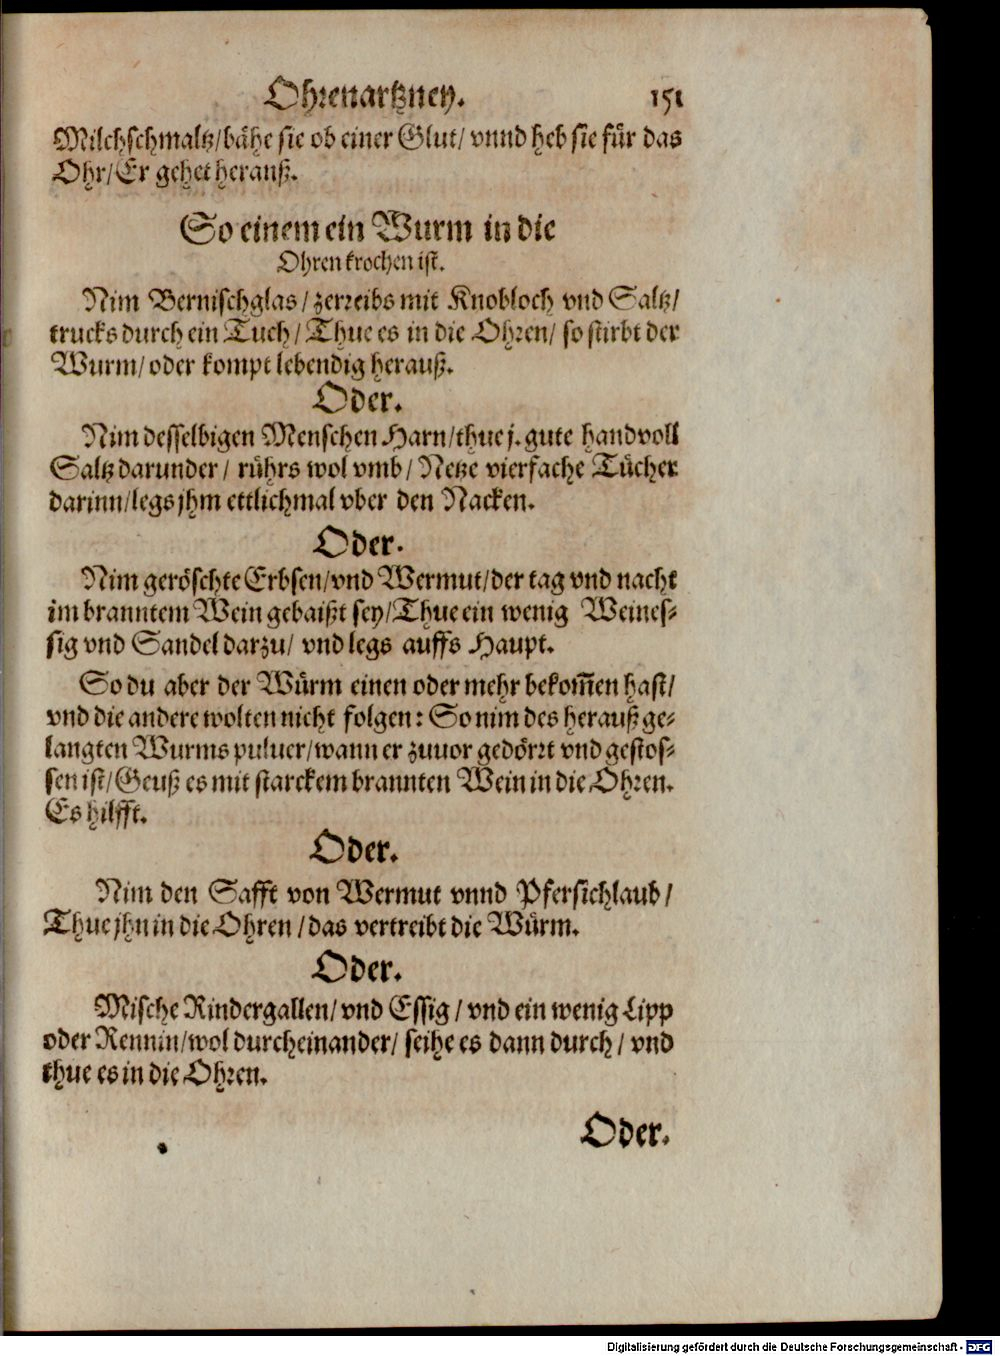 Ohrenartzney. 151
Milchschmaltz/bähe sie ob einer Glut/ vnnd heb sie für das
Ohr/Er gehet herauß.
So einem ein Wurm in die
Ohren krochen ist.
Nim Bernischglas/zerreibs mit Knobloch vnd Saltz/
trucks durch ein Tuch/Thue es in die Ohren/ so stirbt der
Wurm/oder kompt lebendig herauß.
Oder.
Nim desselbigen Menschen Harn/thue j. gute handvoll
Saltz darunder/ rührs wol vmb/Netze vierfache Tücher
darinn/legs jhm ettlichmal vber den Nacken.
Oder.
Nim geröschte Erbsen/vnd Wermut/der tag vnd nacht
im branntem Wein gebaißt sey/Thue ein wenig Weines-
sig vnd Sandel darzu/ vnd legs auffs Haupt.
So du aber der Würm einen oder mehr bekom̃en hast/
vnd die andere wolten nicht folgen: So nim des herauß ge-
langten Wurms puluer/wann er zuuor gedörrt vnd gestos-
sen ist/Geuß es mit starckem brannten Wein in die Ohren.
Es hilfft.
Oder.
Nim den Safft von Wermut vnnd Pfersichlaub/
Thue jhn in die Ohren/das vertreibt die Würm.
Oder.
Mische Rindergallen/vnd Essig/vnd ein wenig Lipp
oder Rennin/wol durcheinander/ seihe es dann durch/ vnd
thue es in die Ohren.
Oder.
Digitalisierung gefördert durch die Deutsche Forschungsgemeinschaft - DFG